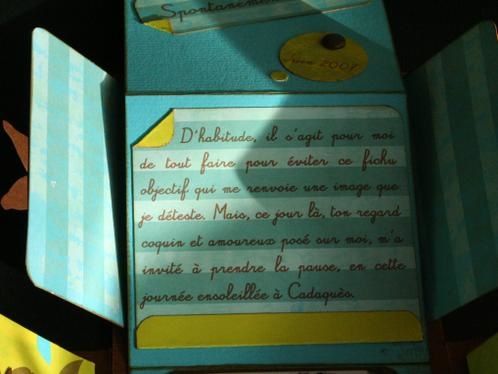 Spontanément
2007
D'habitude, il s'agit pour moi
de tout faire pour éviter ce fichu
objectif qui me renvoie une image que
je déteste. Mais, ce jour là, ton regard
coquin et amoureux posé sur moi, m'a
invité à prendre la pause, en cette
journée ensoleillée à Cadaquès.